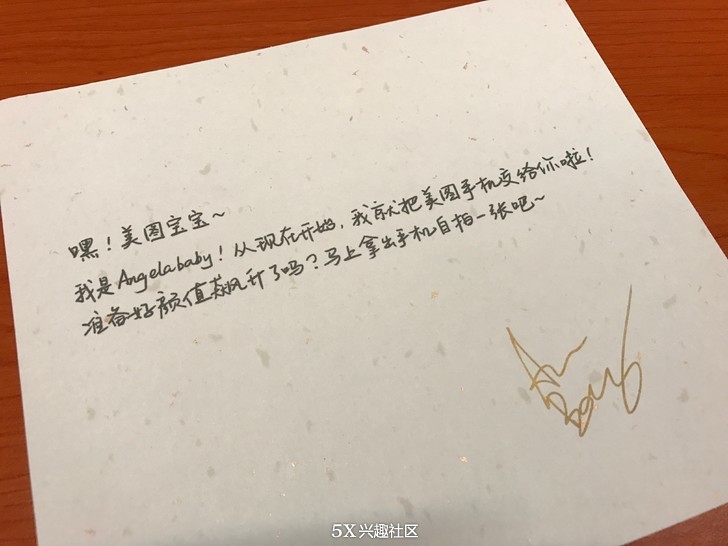 嘿！美图宝宝～
我是Angelababy！从现在开始，我就把美图手机交给你啦！
准备好颜值飙升了吗？马上拿出手机自拍一张吧～
5X兴趣社区